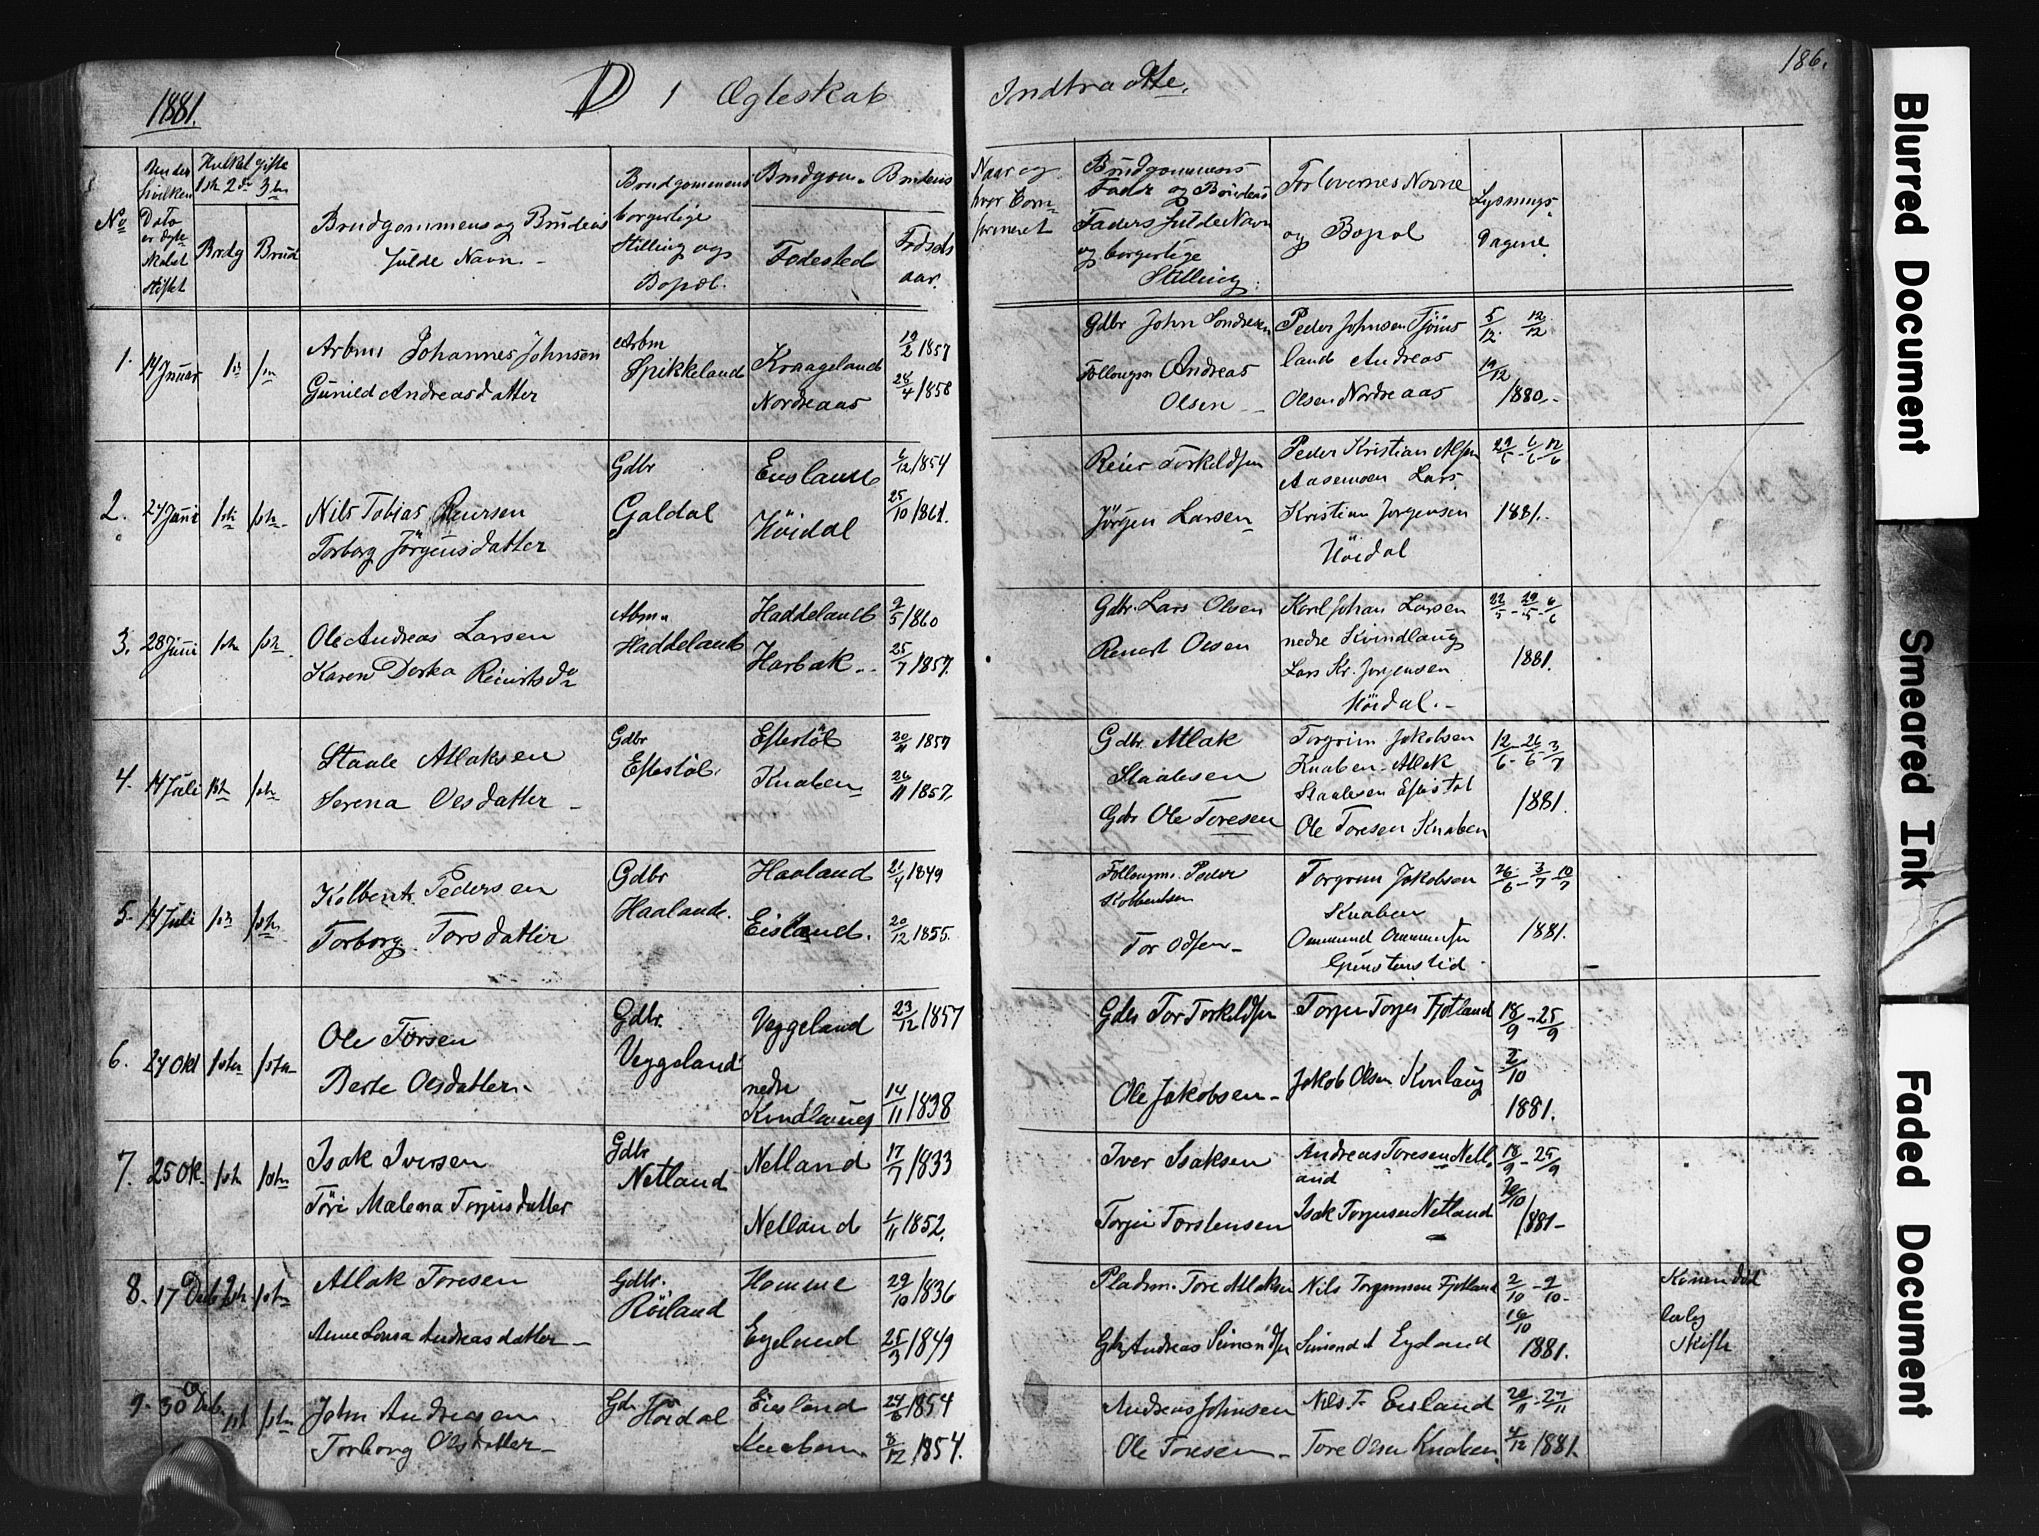 186.
1881.
D 1 Ægteskab Indtraadte.
No
Under hvilken Dato er Ægteskabet stiftet
Hvilket gifte 1ste 2det 3die
Brdg Brud
Brudgommens og Brudens fulde Navn
Brudgommens borgerlige Stilling og Bopæl.
Brudgom. Brudens
Fødested
Fødsels aar.
Naar og hvor Confirmeret
Brudgommens Fader og Brudens Faders fulde Navn og borgerlige Stilling.
Forlovernes Navne og Bopæl
Lysnings Dagene
1. 14 Januar 1ste 1ste
Arbms Johannes Johnsen
Gunild Andreasdatter
Arbm Spikkeland
Kraageland 19/2 1857
Nordraas 28/4 1858
Gdbr John Sondresen
Follougsm Andreas Olsen
Peder Johnsen Tjöns land Andreas Olsen Nordraas
5/12. 12/12 19/12 1880.
2. 24 Juni 1ste 1ste
Nils Tobias Reiersen
Torborg Jörgensdatter
Gdbr Galdal
Eiesland 6/12 1854
Höidal 25/10 1861.
Reier Torkeldsen
Jörgen Larsen
Peder Kristian
Aasemoen Lars Kristian Jorgensen Höidal
29/5 - 6/6 - 12/6 1881.
3. 28 Juni 1ste 1ste
Ole Andreas Larsen
Karen Dorka Reiertsdr
Abm. Haddeland
Haddeland 9/5 1860
Harbak 25/7 1857.
Gdbr. Lars Olsen
Reiert Olsen
Karl Johan Larsen nedre Kvindlaug
Lars Kr. Jorgensen Höidal.
22/5 - 29/5 - 6/6 1881.
4. 14 Juli 1ste 1ste
Staale Atlaksen
Serena Olsdatter
Gdbr Eftestöl.
Eftestöl 20/11 1857
Knaben 26/11 1857.
Gdbr. Atlak Staalesen
Gdbr Ole Toresen
Torgrim Jakobsen Knaben. Atlak Staalesen Eftestöl
Ole Toresen Knaben
12/6 - 26/6 - 3/7 1881.
5. 14 Juli 1ste 1ste
Kolbent Pedersen
Torborg Torsdatter
Gdbr Haaland.
Haaland 21/4 1849
Eisland. 20/12 1855.
Follougsm. Peder Kolbentsen
Tor Odsen
Torgrim Jakobsen Knaben
Ommund Ommundsen
26/6 - 3/7 - 10/7 1881.
6. 24 Okt 1ste 1ste
Ole Torsen
Berte Olsdatter
Gdbr. Veggeland
Veggeland 23/12 1857
nedre Kvindlaug 14/11 1838
Gdbr Tor Torkeldsen
Ole Jakobsen
Torjer Torjes Fjotland
Jakob Olsen Kvinlaug
18/9 - 25/9 2/10 1881.
7. 25 Ok. 1ste 1ste
Isak Iversen
Töri Malena Torjusdatter
Gdbr Netland
Netland 17/7 1833
Netland 1/11 1852.
Iver Isaksen
Torjei Torstensen
Andreas Toresen Netland
Isak Torjussen Netland
18/9 - 25/9 1881
8. 17 Decb 2den 1ste
Atlak Toresen
Anne Lovisa Andreasdatter
Gdbr. Röiland
Homme 29/10 1836
Egeland 25/3 1849
Pladsm. Tore Atlaksen
Gbr Andreas Simondsen
Nils Torgrimsen Fjotland
Simond A Egeland
2/10 - 9/10 16/10 1881.
Konen död
Skifte
9. 30 Decb. 1ste 1ste
John Andreasen
Torborg Olsdatter
Gdbr Höidal
Eiesland 24/6 1854
Knaben 8/12 1854.
Andreas Johnsen
Ole Toresen
Nils T. Eiesland
Tore Olsen Knaben.
20/11 - 27/11 4/12 1881.
Blurred Document
Smeared Ink
Faded Document